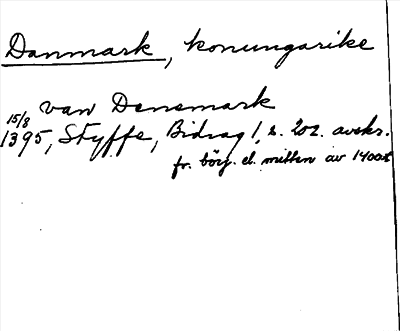 Danmark, konungarike
van Denemark
15/8
1395, Styffe, Bidrag 1, s. 202. avskr.
fr. börj. el. mitten av 1400-t